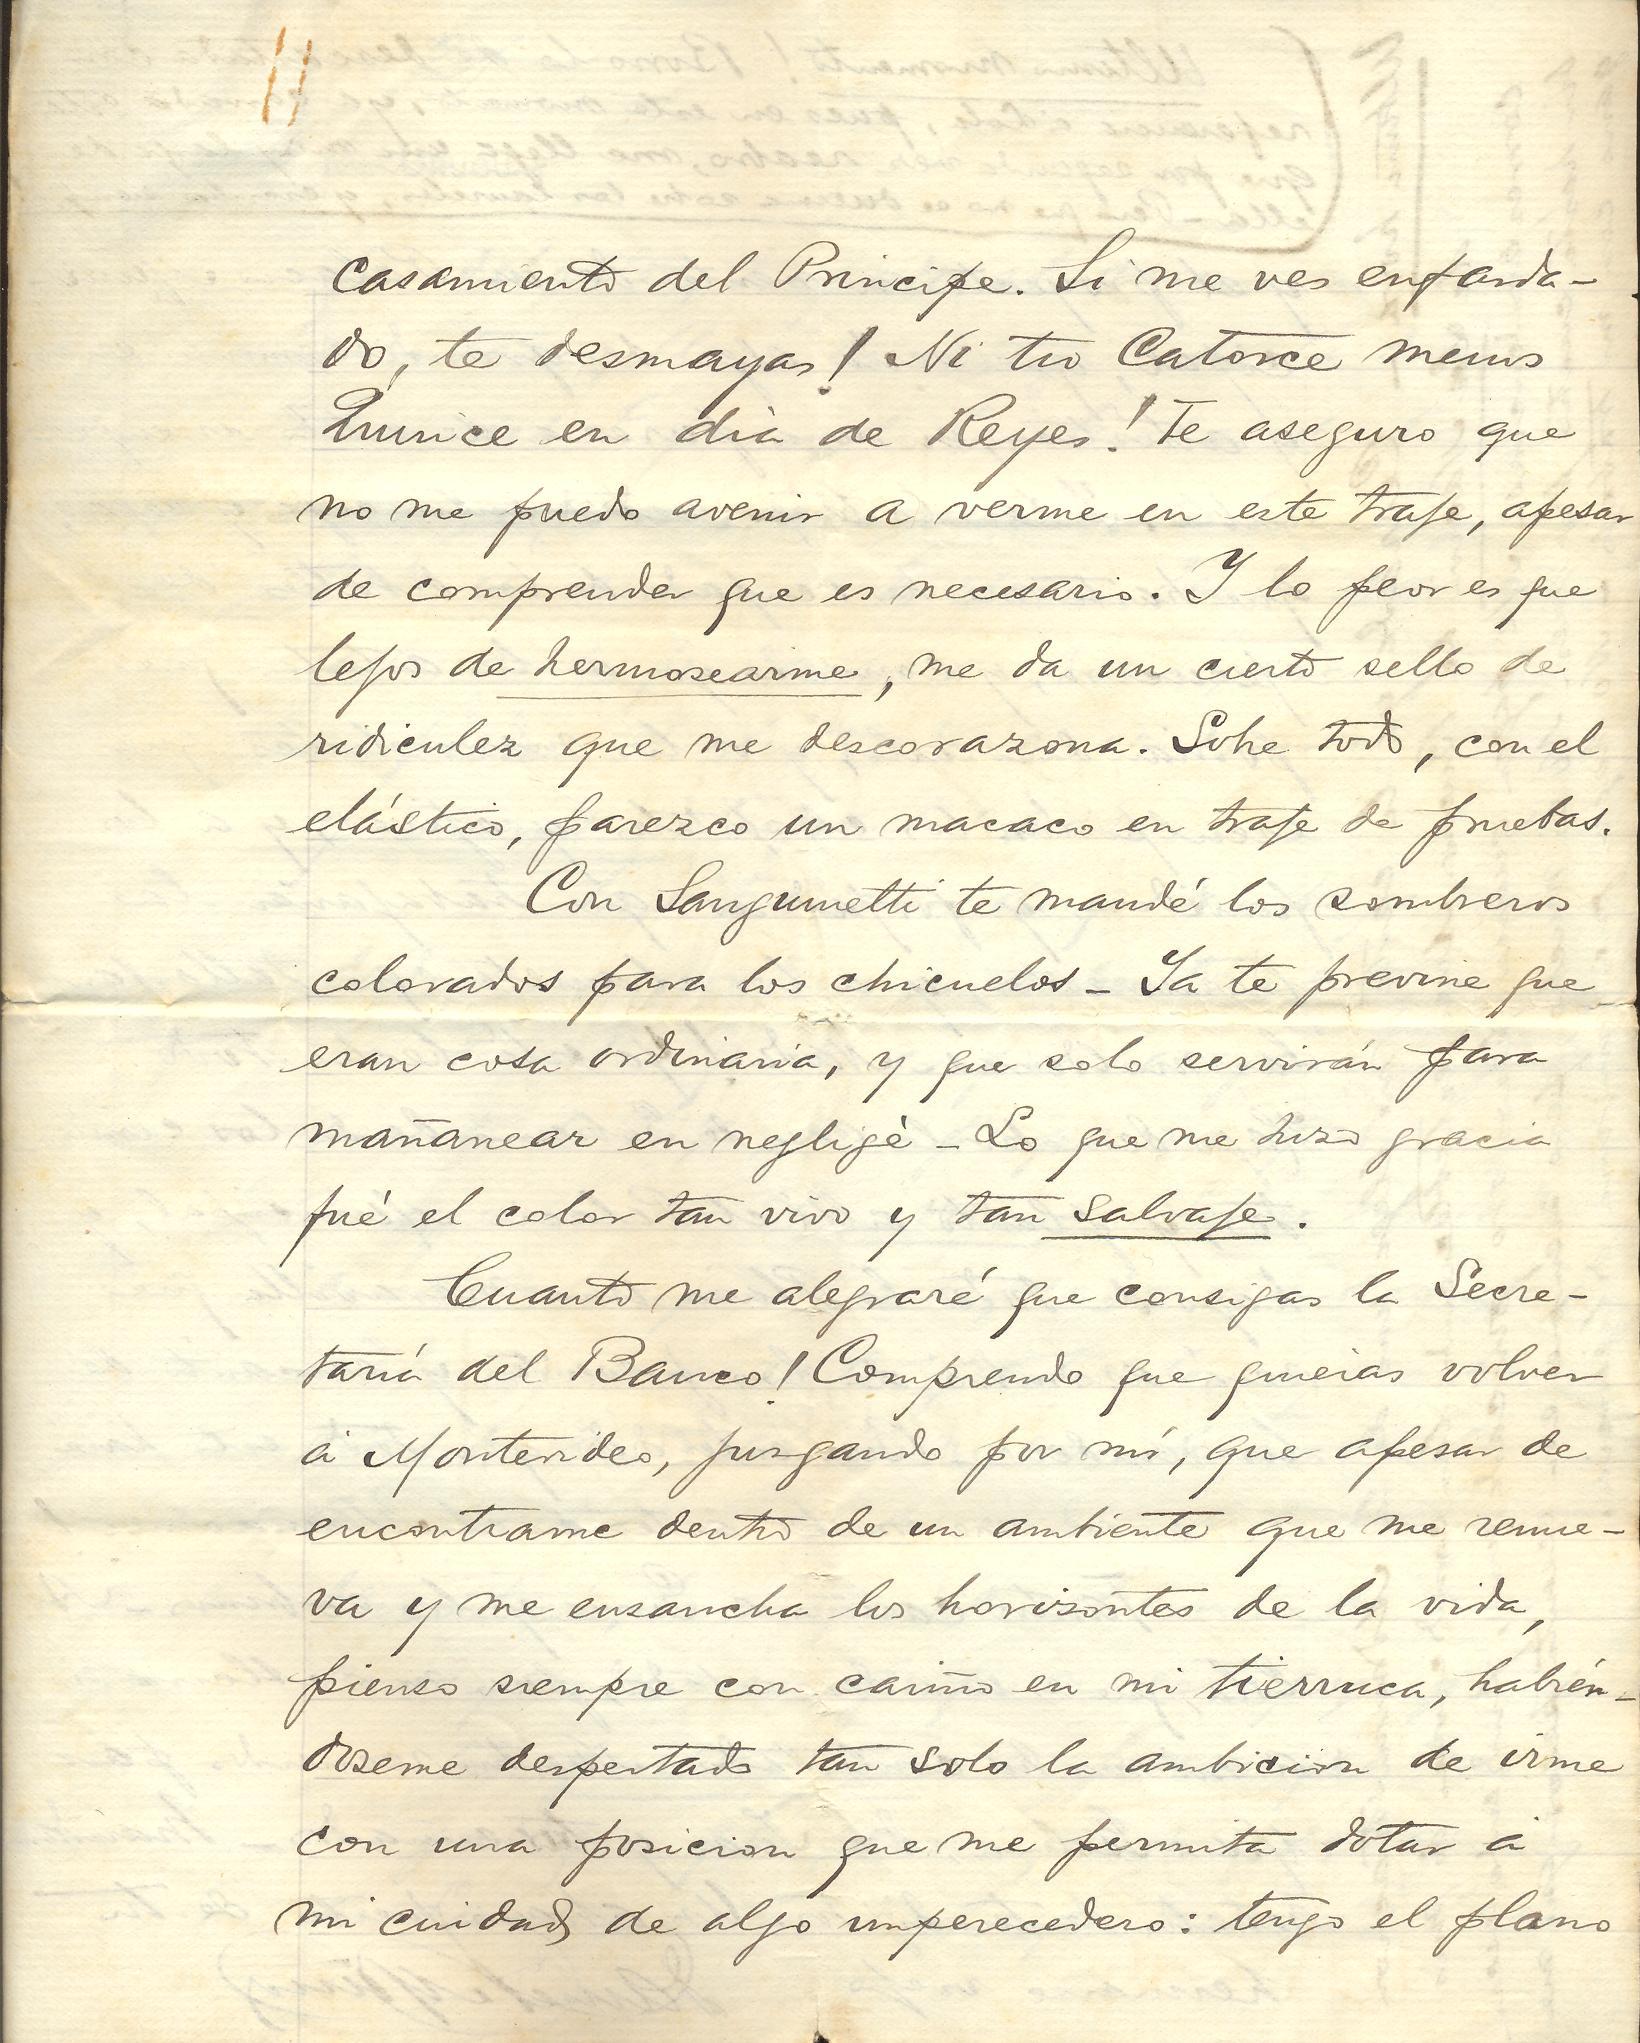 casamiento del Principe. Si me ves enfarda-
do, te desmayas! Ni tio Catorce menos
Quince en dia de Reyes! Te aseguro que
no me puedo avenir a verme en este traje, apesar
de comprender que es necesario. Y lo peor es que
lejos de hermosearme, me da un cierto sello de
ridiculez que me descorazona. Sobre todo, con el
elástico, parezco un macaco en traje de pruebas.
Con Sanguinetti te mandé los sombreros
colorados para los chicuelos - Ya te previne que
eran cosa ordinaria, y que solo servirán para
mañanear en negligé - Lo que me hizo gracia
fué el color tan vivo y tan salvaje.
Cuanto me alegraré que consigas la Secre-
taría del Banco! Comprendo que quieras volver
á Montevideo, juzgando por mí, que apesar de
encontrarme dentro de un ambiente que me renue-
va y me ensancha los horizontes de la vida,
pienso siempre con cariño en mi tierruca, habién-
doseme despertado tan solo la ambicion de irme
con una posicion que me permita dotar á
mi ciudad de algo imperecedero: tengo el plano